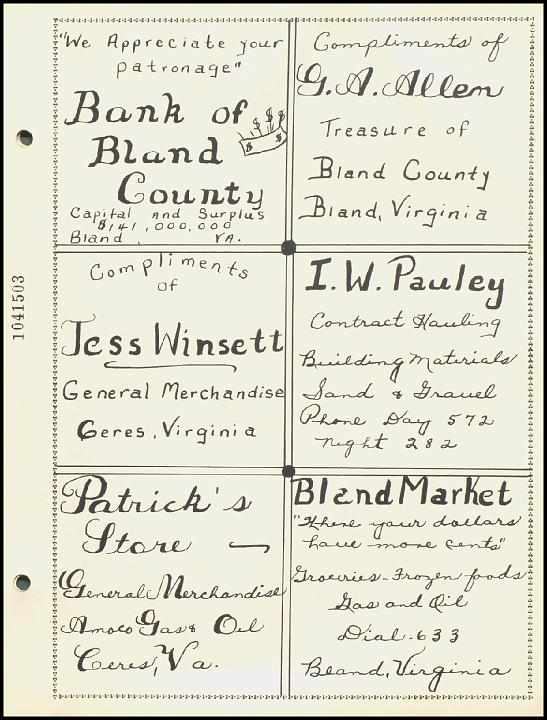 "We Appreciate your
patronage"
Bank of
Bland
County
Capital and Surplus
$141,000,000
Bland, VA.
Compliments of
G. A. Allen
Treasure of
Bland County
Bland, Virginia
Compliments
of
Jess Winsett
General Merchandise
Ceres, Virginia
I. W. Pauley
Contract Hauling
Building Materials
Sand & Gravel
Phone Day 572
night 282
Patrick's
Store
General Merchandise
Amoco Gas & Oil
Ceres, Va.
Bland Market
"Where your dollars
have more cents"
Groceries - Frozen foods
Gas and Oil
Dial - 633
Bland, Virginia
1041503